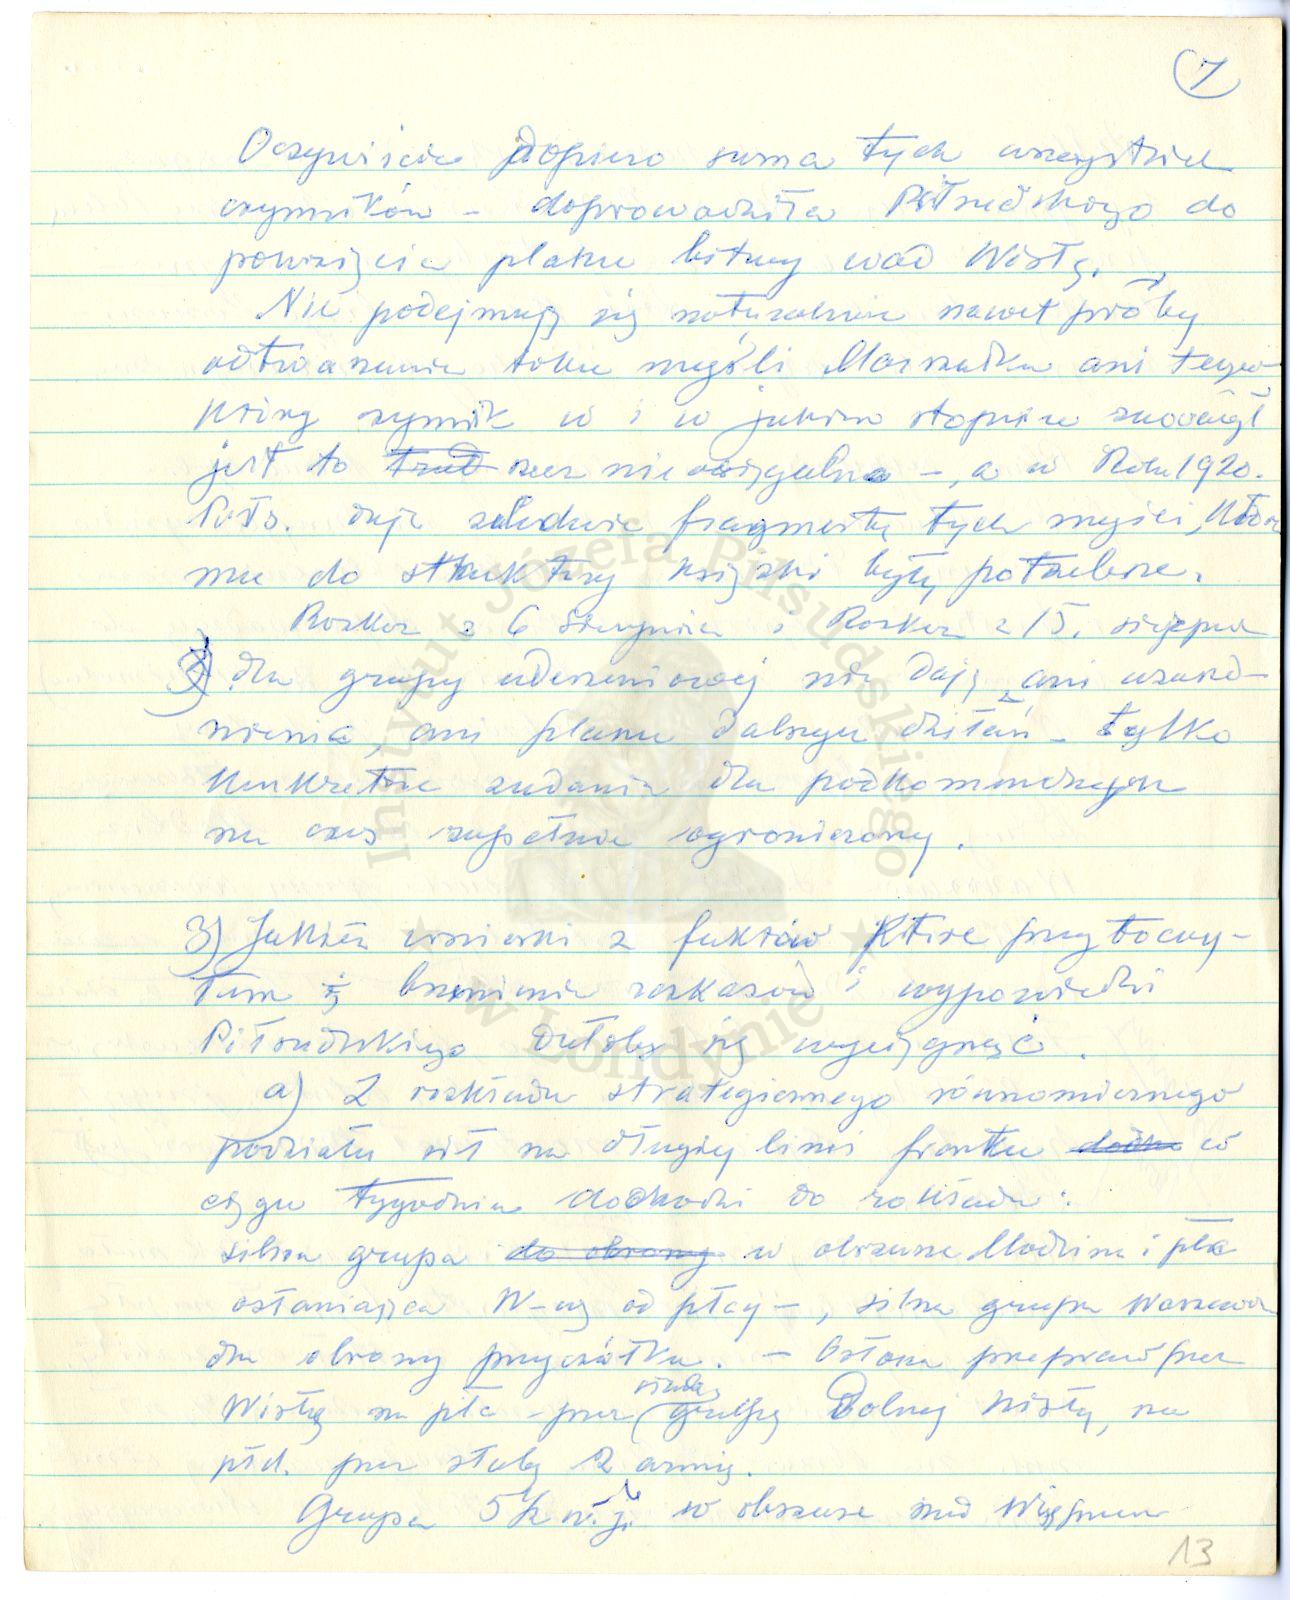 7
Oczywiście dopiero suma tych wszystkich
czynników – doprowadziła Piłsudskiego do
powzięcia planu bitwy nad Wisłą.
Nie podejmuję się naturalnie nawet próby
odtworzenia toku myśli Marszałka ani tego
który czynnik w i w jakim stopniu zaważył
jest to trud rzecz nieosiągalna –, a w Roku 1920.
Piłs. daje zaledwie fragmenty tych myśli, które
mu do struktury książki były potrzebne.
Rozkaz z 6 sierpnia i Rozkaz z 15. sierpnia
dla grupy uderzeniowej nie dają ani uzasad-
nienia, ani planu dalszych działań – tylko
konkretne zadania dla podkomendnych
na czas zupełnie ograniczony.
3) Jakież wnioski z faktów które przytoczy-
łem i z brzmienia rozkazów i wypowiedzi
Piłsudskiego dałoby się wyciągnąć.
a) Z rozkładu strategicznego równomiernego
podziału sił na długiej linii frontu w
ciągu tygodnia dochodzi do rozkładu:
silna grupa do obrony w obszarze Modlina i płn
osłaniająca W-wę od płn –, silna grupa Warszawa
dla obrony przyczółka. – Osłona przepraw przez
Wisłę na płn – przez słabą grupę Dolnej Wisły, na
płd. przez słabą 2 armię.
Grupa 5½ w. j. w obszarze nad Wieprzem
13
Instytut Józefa Piłsudskiego
w Londynie